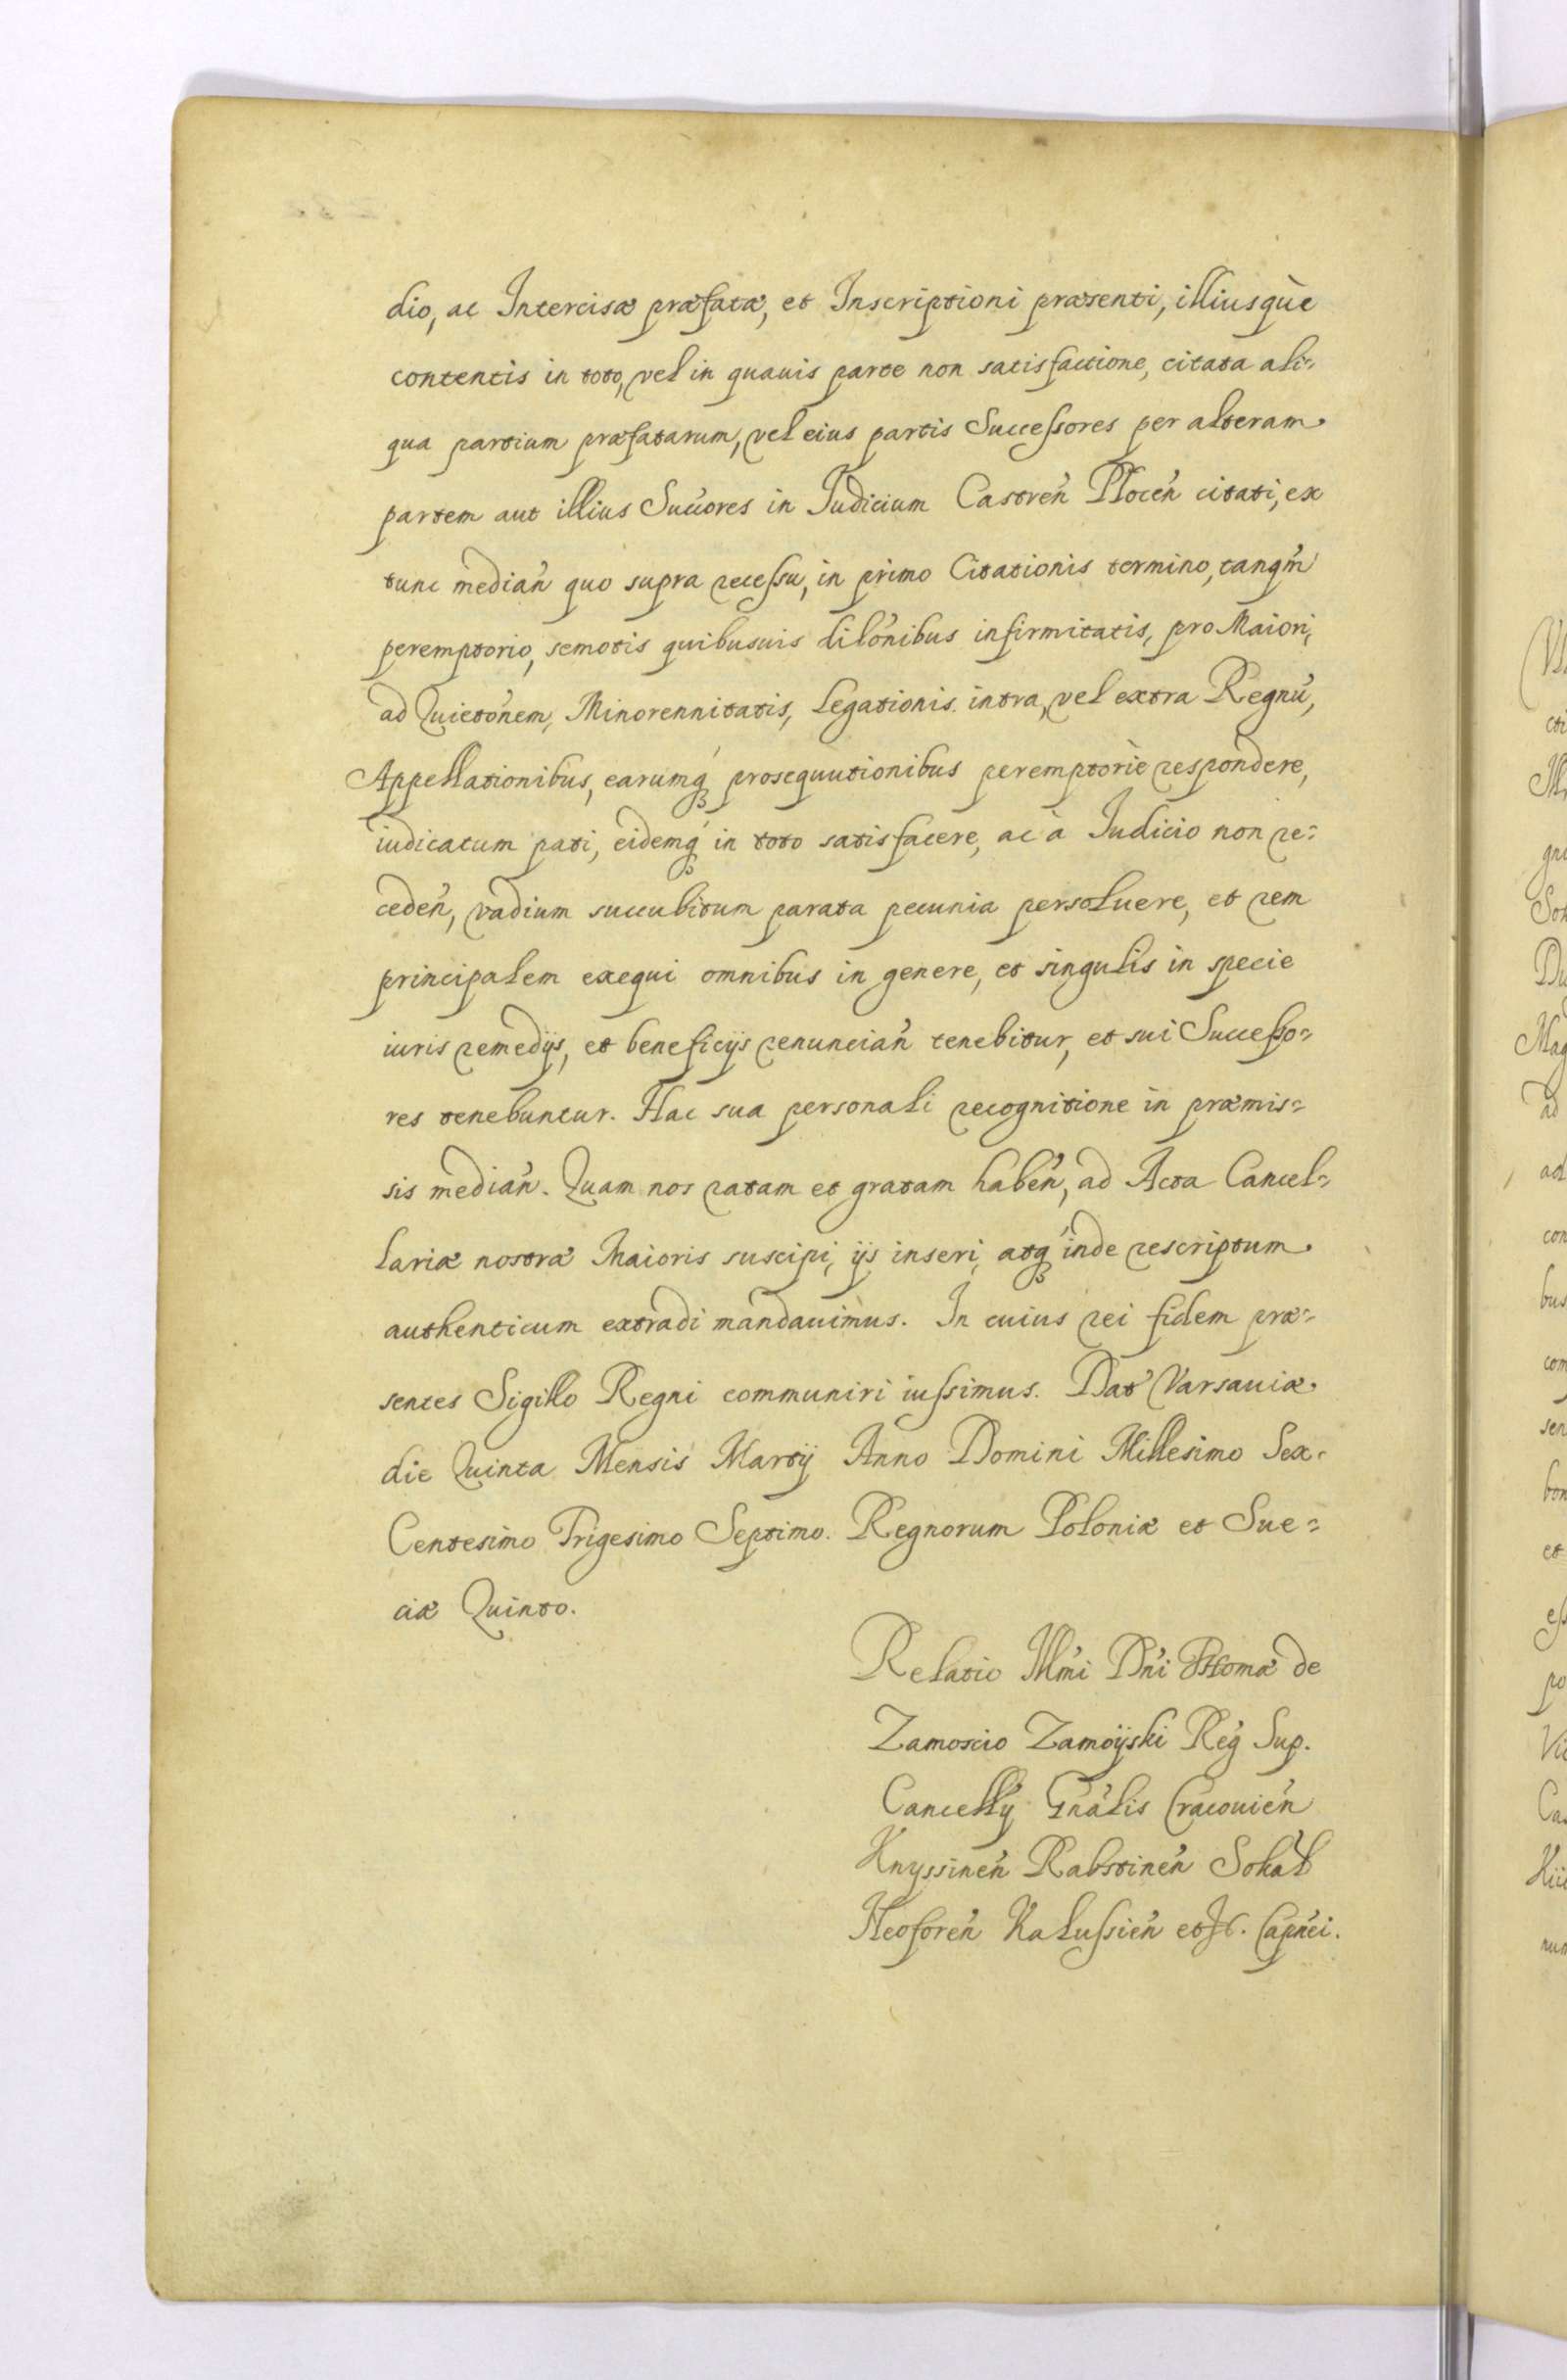 dio, ac Intercisæ præfatæ, et Inscriptioni præsenti, illiusquè
contentis in toto, vel in quauis parte non satisfactione, citata ali=
qua partium præfatarum, vel eius partis Successores per alteram
partem aut illius Succ̃ores in Judicium Castreñ Ploceñ citati, ex
tunc mediañ quo supra recessu, in primo Citationis termino, tanqm̃
peremptorio, semotis quibusuis dilõnibus infirmitatis, pro Maiori,
ad Quietõnem, Minorennitatis, Legationis intra, vel extra Regnũ,
Appellationibus, earumq́ꝫ prosequutionibus peremptoriè respondere,
iudicatum pati, eidemq́ꝫ in toto satisfacere, ac à Iudicio non re=
cedeñ, vadium succubitum parata pecunia persoluere, et rem
principalem exequi omnibus in genere, et singulis in specie
iuris remedijs, et beneficijs renunciañ tenebitur, et sui Successo=
res tenebuntur. Hac sua personali recognitione in præmis=
sis mediañ. Quam nos ratam et gratam habeñ, ad Acta Cancel=
lariæ nostræ Maioris suscipi, ijs inseri, atq́ꝫ inde rescriptum
authenticum extradi mandauimus. In cuius rei fidem præ=
sentes Sigillo Regni communiri iussimus. Dat̃ Varsauiæ
die Quinta Mensis Martij Anno Domini Millesimo Sex=
Centesimo Trigesimo Septimo. Regnorum Poloniæ et Sue=
ciæ Quinto.
Relatio Illm̃i Dñi Thomæ de
Zamoscio Zamoÿski Reg̃ Sup.
Cancellr̃ij Gñalis Cracouieñ
Knyssineñ Rabstineñ Sokal̃
Neoforeñ Kalussieñ etc. Capñei.